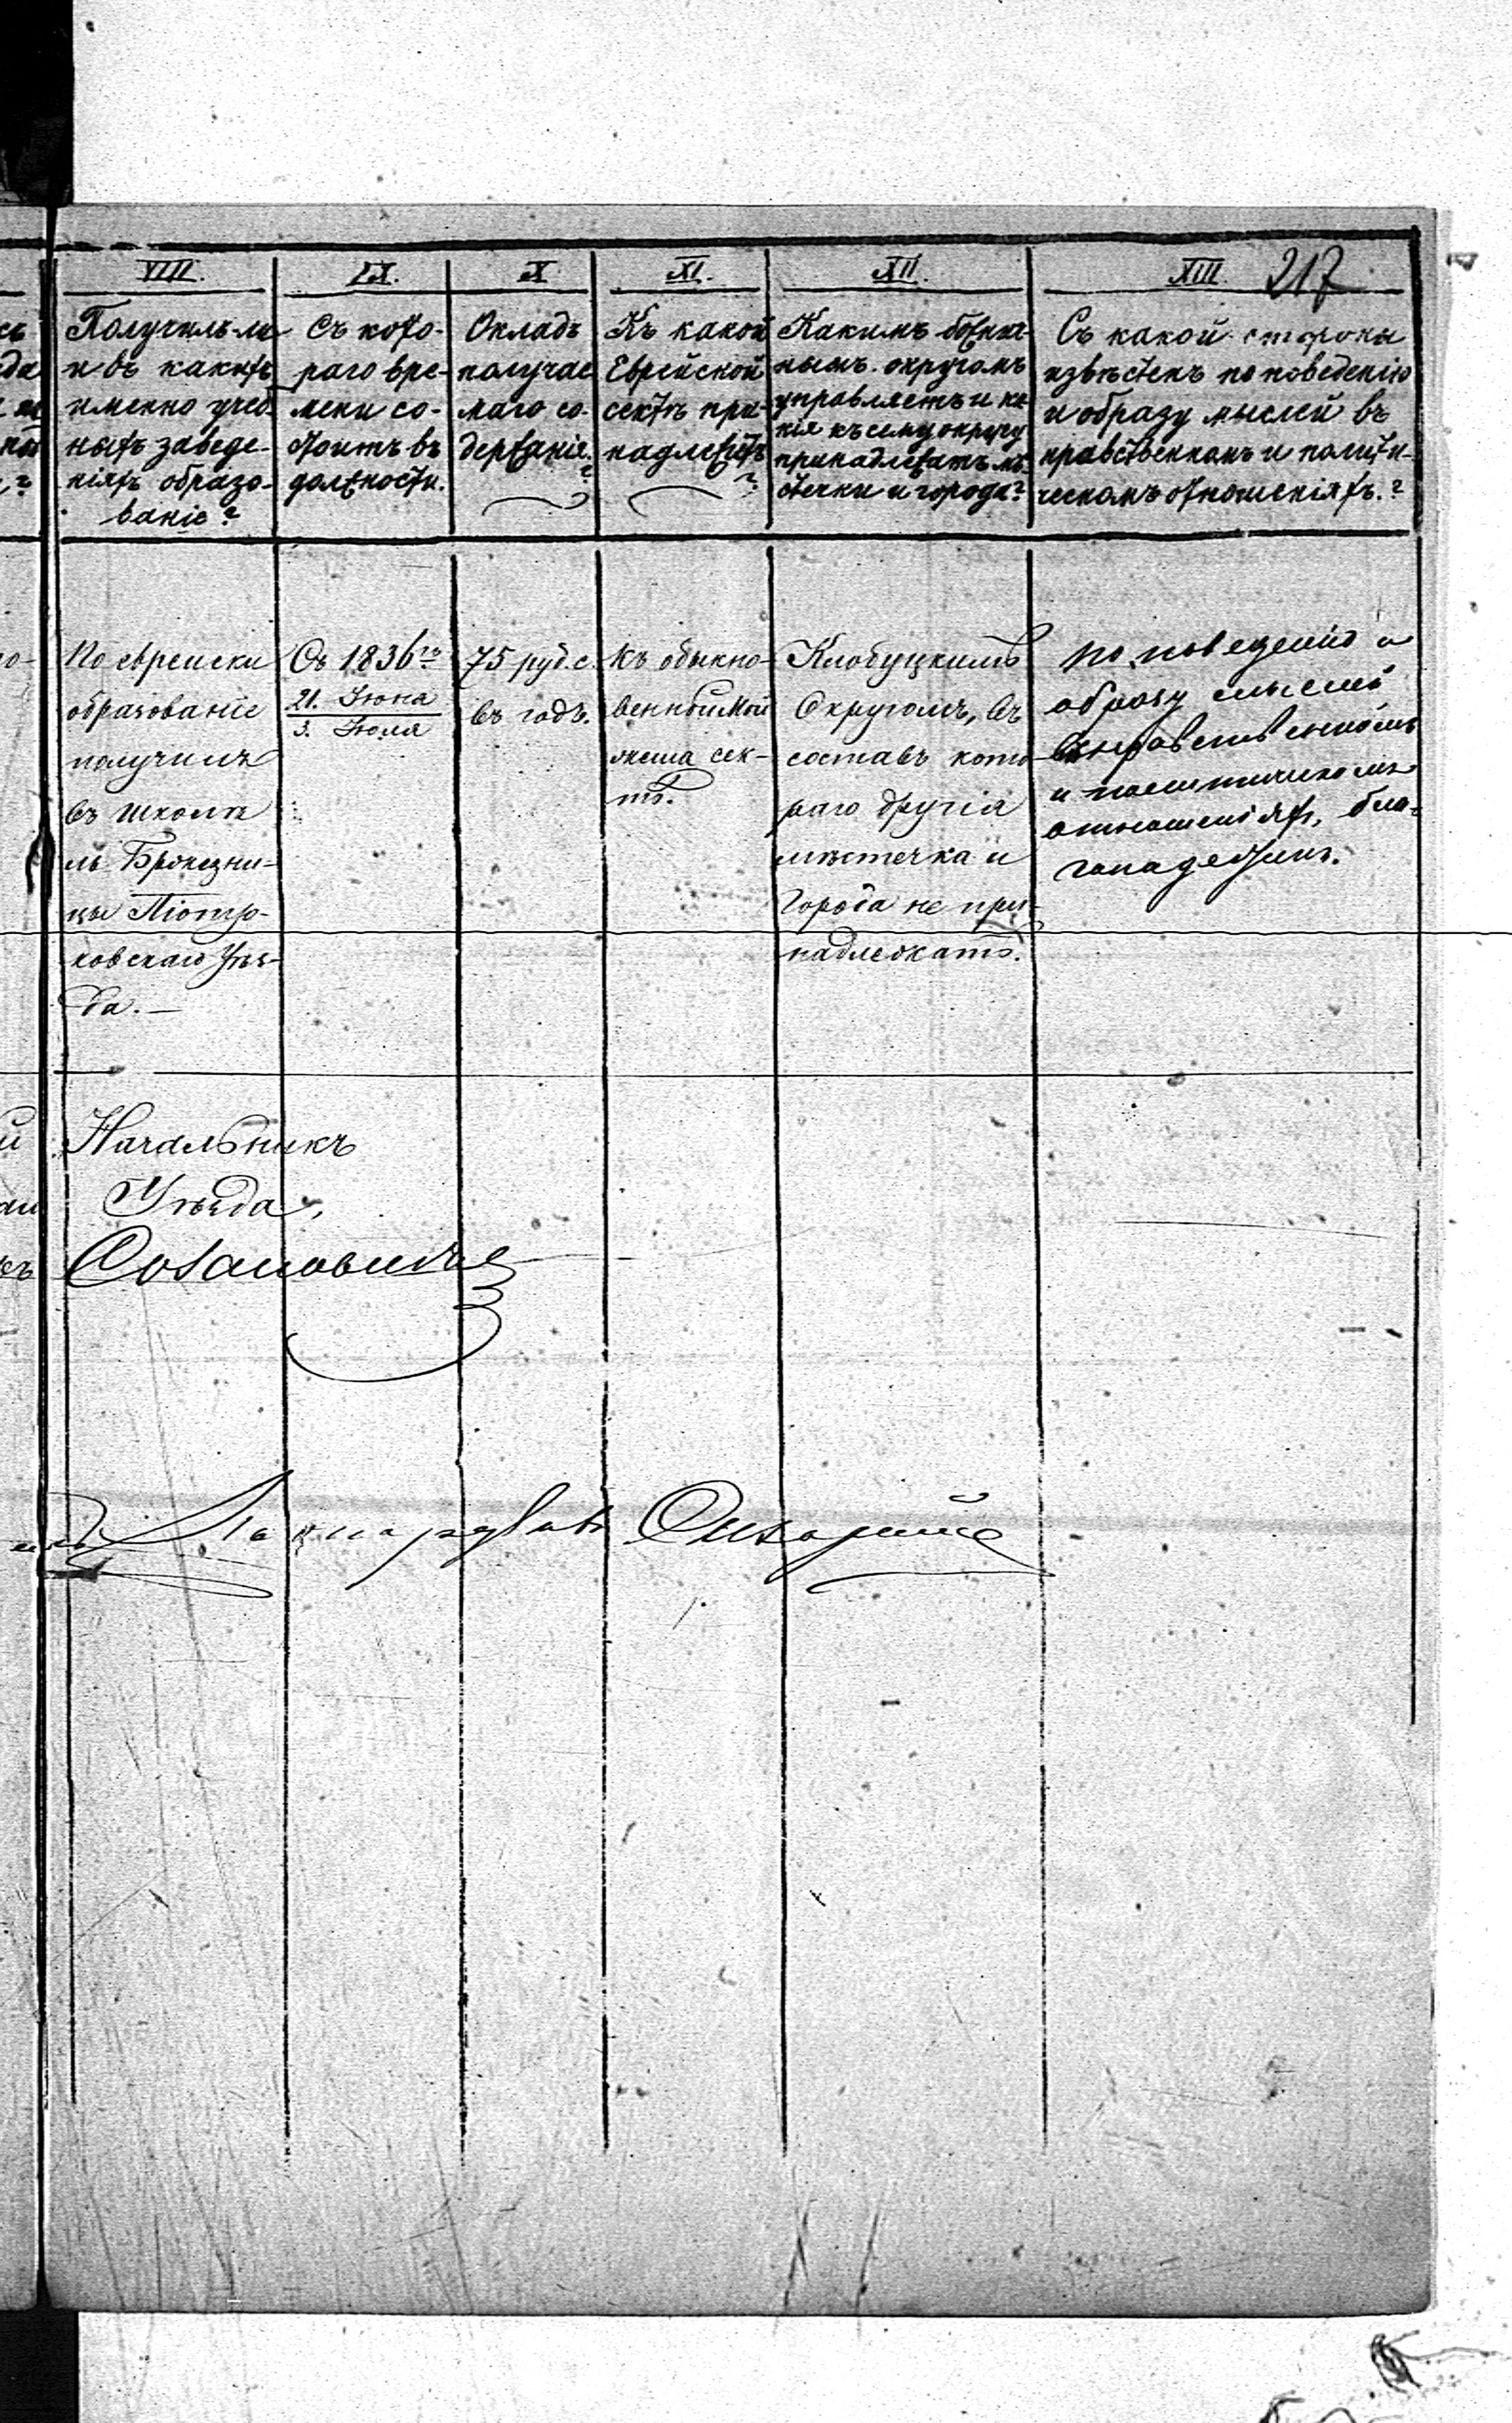 217
VIII.
Получилъ-ли
и въ какихъ
именно учеб-
ныхъ заведе-
ніяхъ образо-
ваніе?
IX.
Съ кото-
раго вре-
мени со-
стоитъ въ
должности.
X
Окладъ
получае
маго со-
держанія.
?
XI.
Къ какой
Еврейской
сектѣ при-
надлежитъ
?
XII.
Какимъ божнич-
нымъ округомъ
управляетъ и ка-
кія къ сему округу
принадлежатъ мѣ-
стечки и города?
XIII.
Съ какой стороны
извѣстенъ по поведенію
и образу мыслей въ
нравственномъ и полити-
ческомъ отношеніяхъ.?
По еврейски
образованіе
получилъ
въ школѣ
Піотр-
ковскаго Уѣз-
да.—
Съ 1836го
21. Іюня
3. Іюля
75 руб.с.
въ годъ.
Къ обыкно-
венной Мой
жеша сек-
тѣ.
Клобуцкимъ
Округомъ, въ
составъ кото
раго другія
мѣстечка и
Города не при-
надлежатъ.
По поведенію и
образу мыслей
въ нравственномъ
и политическомъ
отношеніяхъ, бла-
гонадеженъ.
Начальникъ
Уѣзда,